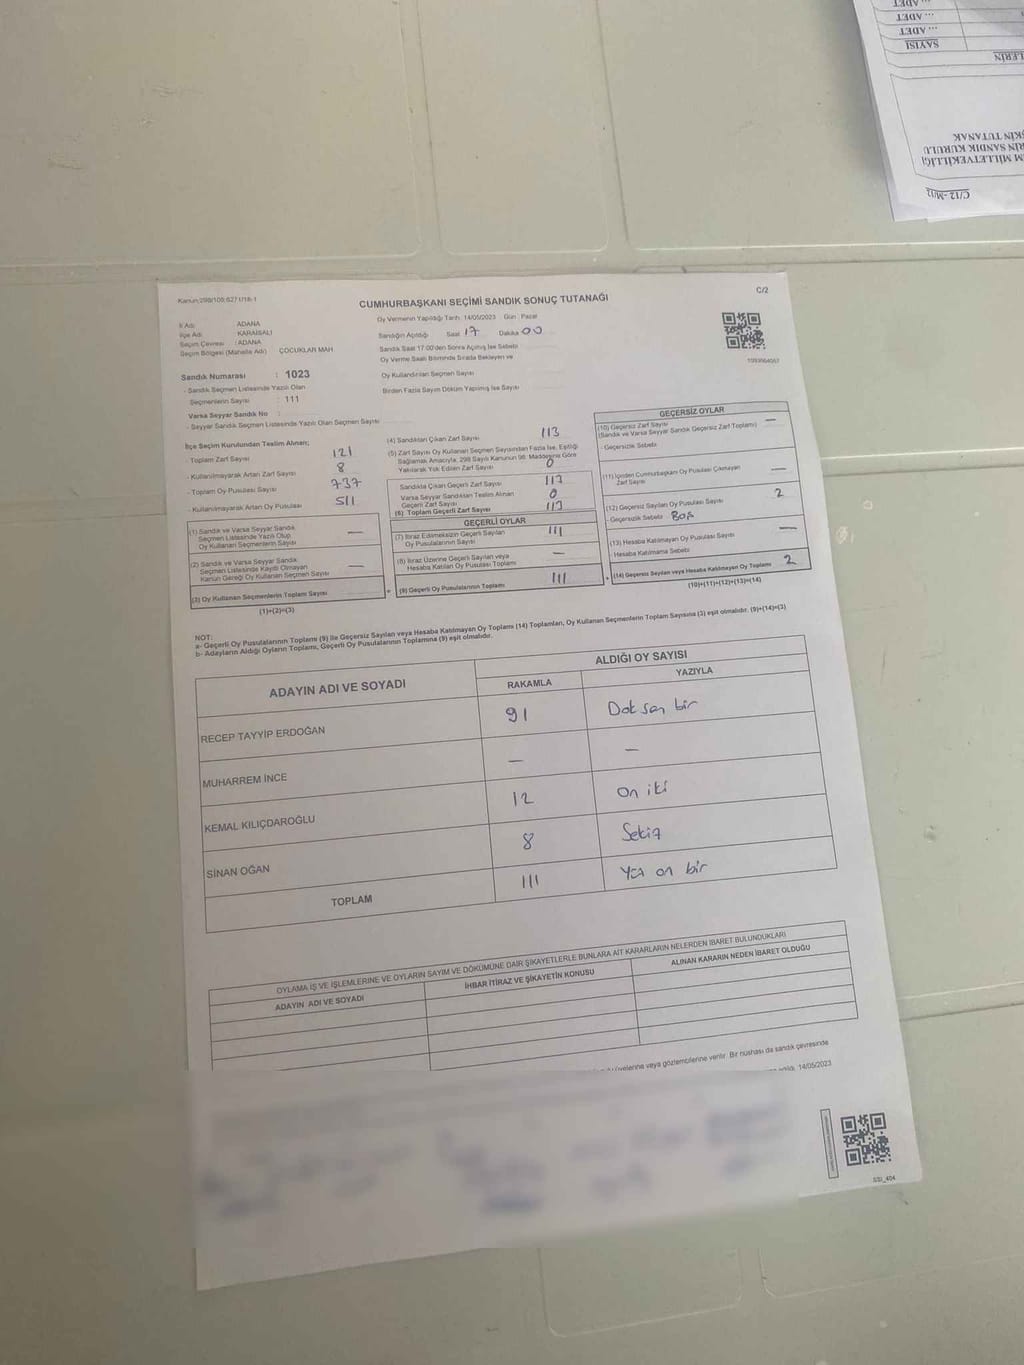 Kanun:298/105;6271/18-1
C/2
CUMHURBAŞKANI SEÇİMİ SANDIK SONUÇ TUTANAĞI
Oy Vermenin Yapıldığı Tarih: 14/05/2023 Gün : Pazar
İl Adı ADANA
İlçe Adı KARAİSALI
Seçim Çevresi : ADANA
Seçim Bölgesi (Mahalle Adı) ÇOCUKLAR MAH
Sandığın Açıldığı Saat 17 Dakika 00
Sandık Saat 17:00'den Sonra Açılmış İse Sebebi
Oy Verme Saati Bitiminde Sırada Bekleyen ve
Oy Kullandırılan Seçmen Sayısı
Birden Fazla Sayım Döküm Yapılmış İse Sayısı
Sandık Numarası : 1023
- Sandık Seçmen Listesinde Yazılı Olan
Seçmenlerin Sayısı : 111
Varsa Seyyar Sandık No
- Seyyar Sandık Seçmen Listesinde Yazılı Olan Seçmen Sayısı
İlçe Seçim Kurulundan Teslim Alınan;
- Toplam Zarf Sayısı 121
- Kullanılmayarak Artan Zarf Sayısı 8
- Toplam Oy Pusulası Sayısı 737
- Kullanılmayarak Artan Oy Pusulası 511
(1) Sandık ve Varsa Seyyar Sandık
Seçmen Listesinde Yazılı Olup
Oy Kullanan Seçmenlerin Sayısı —
(2) Sandık ve Varsa Seyyar Sandık
Seçmen Listesinde Kayıtlı Olmayan
Kanun Gereği Oy Kullanan Seçmen Sayısı —
(3) Oy Kullanan Seçmenlerin Toplam Sayısı
(1)+(2)=(3)
(4) Sandıktan Çıkan Zarf Sayısı 113
(5) Zarf Sayısı Oy Kullanan Seçmen Sayısından Fazla İse, Eşitliği
Sağlamak Amacıyla; 298 Sayılı Kanunun 98. Maddesine Göre
Yakılarak Yok Edilen Zarf Sayısı 0
Sandıkta Çıkan Geçerli Zarf Sayısı 113
Varsa Seyyar Sandıktan Teslim Alınan
Geçerli Zarf Sayısı 0
(6) Toplam Geçerli Zarf Sayısı 113
GEÇERLİ OYLAR
(7) İtiraz Edilmeksizin Geçerli Sayılan
Oy Pusulalarının Sayısı 111
(8) İtiraz Üzerine Geçerli Sayılan veya
Hesaba Katılan Oy Pusulası Toplamı —
(9) Geçerli Oy Pusulalarının Toplamı 111
GEÇERSİZ OYLAR
(10) Geçersiz Zarf Sayısı —
(Sandık ve Varsa Seyyar Sandık Geçersiz Zarf Toplamı)
- Geçersizlik Sebebi
(11) İçinden Cumhurbaşkanı Oy Pusulası Çıkmayan
Zarf Sayısı —
(12) Geçersiz Sayılan Oy Pusulası Sayısı 2
- Geçersizlik Sebebi Boş
(13) Hesaba Katılmayan Oy Pusulası Sayısı —
- Hesaba Katılmama Sebebi
(14) Geçersiz Sayılan veya Hesaba Katılmayan Oy Toplamı 2
(10)+(11)+(12)+(13)=(14)
NOT:
a- Geçerli Oy Pusulalarının Toplamı (9) ile Geçersiz Sayılan veya Hesaba Katılmayan Oy Toplamı (14) Toplamları, Oy Kullanan Seçmenlerin Toplam Sayısına (3) eşit olmalıdır. (9)+(14)=(3)
b- Adayların Aldığı Oyların Toplamı, Geçerli Oy Pusulalarının Toplamına (9) eşit olmalıdır.
ADAYIN ADI VE SOYADI
ALDIĞI OY SAYISI
RAKAMLA YAZIYLA
RECEP TAYYİP ERDOĞAN 91 Doksan bir
MUHARREM İNCE — —
KEMAL KILIÇDAROĞLU 12 on iki
SİNAN OĞAN 8 Sekiz
TOPLAM 111 Yüz on bir
OYLAMA İŞ VE İŞLEMLERİNE VE OYLARIN SAYIM VE DÖKÜMÜNE DAİR ŞİKAYETLERLE BUNLARA AİT KARARLARIN NELERDEN İBARET BULUNDUKLARI
ADAYIN ADI VE SOYADI
İHBAR İTİRAZ VE ŞİKAYETİN KONUSU
ALINAN KARARIN NEDEN İBARET OLDUĞU
üyelerine veya gözlemcilerine verilir. Bir nüshası da sandık çevresinde
14/05/2023
C/12-M/12
M MİLLETVEKİLLİĞİ
RİN SANDIK KURULU
KİN TUTANAK
LERİN
SAYISI
... ADET
... ADET
... ADET